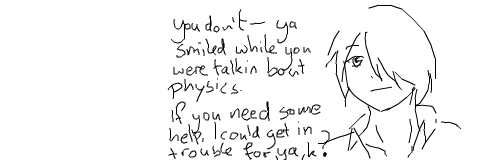 you don't — ya
smiled while you
were talkin bout
physics.
If you need some
help, I could get in
trouble for ya, k?